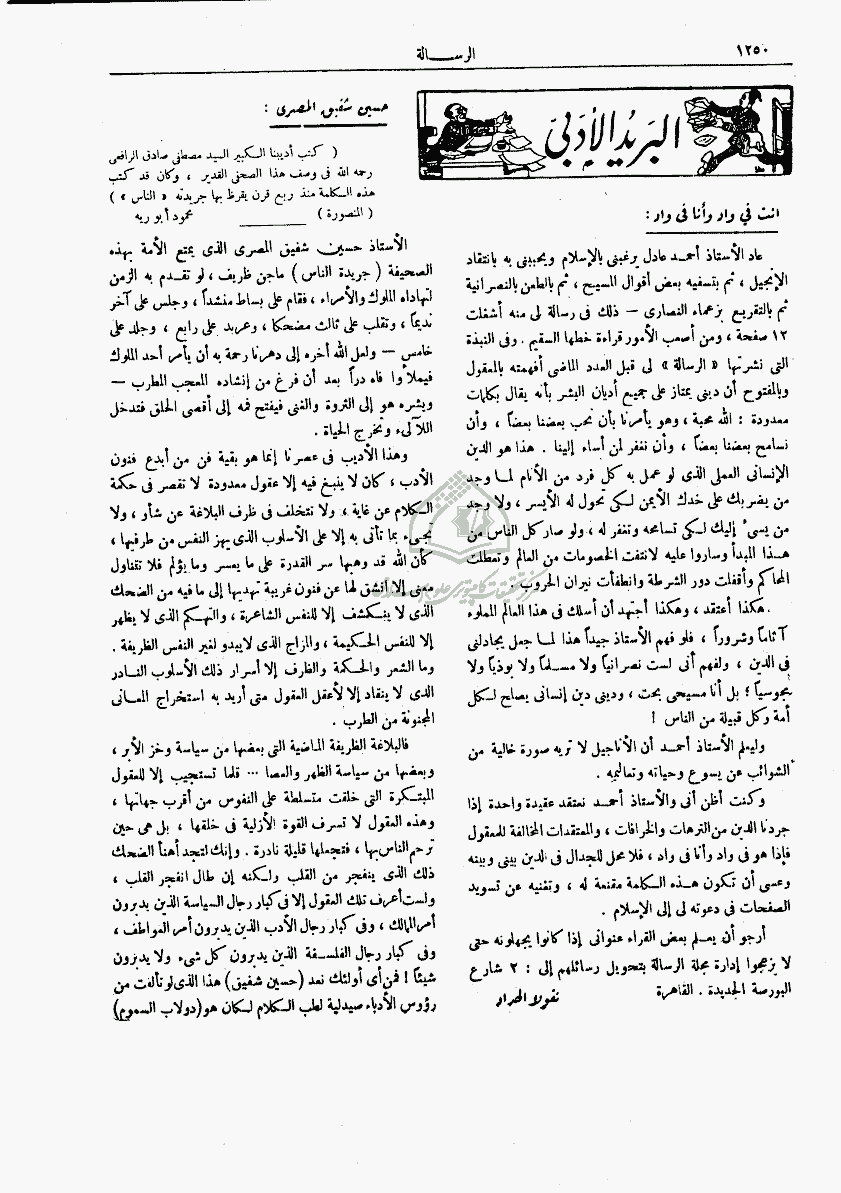 ١٢٥٠
الرســـالة
البريد الأدبي
أنت في واد وأنا في واد :
عاد الأستاذ أحمد عادل يرغبني بالإسلام ويحببني به بانتقاد
الإنجيل ، ثم بتسفيه بعض أقوال المسيح ، ثم بالطعن بالنصرانية
ثم بالتقريع بزعماء النصارى — ذلك في رسالة لي منه أشغلت
١٢ صفحة ، ومن أصعب الأمور قراءة خطها السقيم . وفي النبذة
التي نشرتها « الرسالة » لي قبل العدد الماضي أفهمته بالمعقول
وبالمفتوح أن ديني يمتاز على جميع أديان البشر بأنه يقال بكلمات
معدودة : الله محبة ، وهو يأمرنا بأن نحب بعضنا بعضاً ، وأن
نسامح بعضنا بعضاً ، وأن نغفر لمن أساء إلينا . هذا هو الدين
الإنساني العملي الذي لو عمل به كل فرد من الأنام لما وجد
من يضربك على خدك الأيمن لكي تحول له الأيسر ، ولا وجد
من يسيء إليك لكي تسامحه وتغفر له ، ولو صار كل الناس من
هذا المبدأ وساروا عليه لانتفت الخصومات من العالم وتعطلت
المحاكم وأقفلت دور الشرطة وانطفأت نيران الحروب .
هكذا أعتقد ، وهكذا أجتهد أن أسلك في هذا العالم المملوء
آثاماً وشروراً ، فلو فهم الأستاذ جيداً هذا لما جعل يجادلني
في الدين ، ولفهم أني لست نصرانياً ولا مسلماً ولا بوذياً ولا
مجوسياً ؛ بل أنا مسيحي بحت ، وديني دين إنساني يصلح لكل
أمة وكل قبيلة من الناس !
وليعلم الأستاذ أحمد أن الأناجيل لا تريه صورة خالية من
الشوائب عن يسوع وحياته وتعاليمه .
وكنت أظن أني والأستاذ أحمد نعتقد عقيدة واحدة إذا
جردنا الدين من الترهات والخرافات ، والمعتقدات المخالفة للمعقول
فإذا هو في واد وأنا في واد ، فلا محل للجدال في الدين بيني وبينه
وعسى أن تكون هذه الكلمة مقنعة له ، وتغنيه عن تسويد
الصفحات في دعوته لي إلى الإسلام .
أرجو أن يعلم بعض القراء عنواني إذا كانوا يجهلونه حتى
لا يزعجوا إدارة مجلة الرسالة بتحويل رسائلهم إلى : ٢ شارع
البورصة الجديدة . القاهرة
نقولا الحداد
حسين شفيق المصري :
( كتب أديبنا الكبير السيد مصطفى صادق الرافعي
رحمه الله في وصف هذا الصحفي القدير ، وكان قد كتب
هذه الكلمة منذ ربع قرن يقرظ بها جريدته « الناس » )
( المنصورة ) محمود أبو ريه
الأستاذ حسين شفيق المصري الذي يمتع الأمة بهذه
الصحيفة ( جريدة الناس ) ماجن ظريف ، لو تقدم به الزمن
لتهاداه الملوك والأمراء ، فقام على بساط منشداً ، وجلس على آخر
نديماً ، وتقلب على ثالث مضحكا ، وعربد على رابع ، وجلد على
خامس — ولعل الله أخره إلى دهرنا رحمة به أن يأمر أحد الملوك
فيملأوا فاه دراً بعد أن فرغ من إنشاده المعجب المطرب —
ويشره هو إلى الثروة والغنى فيفتح فمه إلى أقصى الحلق فتدخل
اللآلىء وتخرج الحياة .
وهذا الأديب في عصرنا إنما هو بقية فن من أبدع فنون
الأدب ، كان لا ينبغ فيه إلا عقول معدودة لا تقصر في حكمة
الكلام عن غاية ، ولا تتخلف في ظرف البلاغة عن شأو ، ولا
تجيء بما تأتي به إلا على الأسلوب الذي يهز النفس من طرفيها ،
كأن الله قد وهبها سر القدرة على ما يسر وما يؤلم فلا تتناول
معنى إلا انشق لها عن فنون غريبة تهديها إلى ما فيه من الضحك
الذي لا ينكشف إلا للنفس الشاعرة ، والتهكم الذي لا يظهر
إلا للنفس الحكيمة ، والمزاج الذي لا يبدو لغير النفس الظريفة .
وما الشعر والحكمة والظرف إلا أسرار ذلك الأسلوب النادر
الذي لا ينقاد إلا لأعقل العقول متى أريد به استخراج المعاني
المجنونة من الطرب .
فالبلاغة الظريفة الماضية التي بعضها من سياسة وخز الأبر ،
وبعضها من سياسة الظهر والعصا ... قلما تستجيب إلا للعقول
المبتكرة التي خلقت متسلطة على النفوس من أقرب جهاتها ،
وهذه العقول لا تسرف القوة الأزلية في خلقها ، بل هي حين
ترحم الناس بها ، فتجعلها قليلة نادرة . وإنك لتجد أهنأ الضحك
ذلك الذي ينفجر من القلب ولكنه إن طال انفجر القلب ،
ولست أعرف تلك العقول إلا في كبار رجال السياسة الذين يدبرون
أمر الممالك ، وفي كبار رجال الأدب الذين يدبرون أمر العواطف ،
وفي كبار رجال الفلسفة الذين يدبرون كل شيء ولا يدبرون
شيئاً ! فمن أي أولئك نعد ( حسين شفيق ) هذا الذي لو تألفت من
رؤوس الأدباء صيدلية لطب الكلام لكان هو ( دولاب السموم )